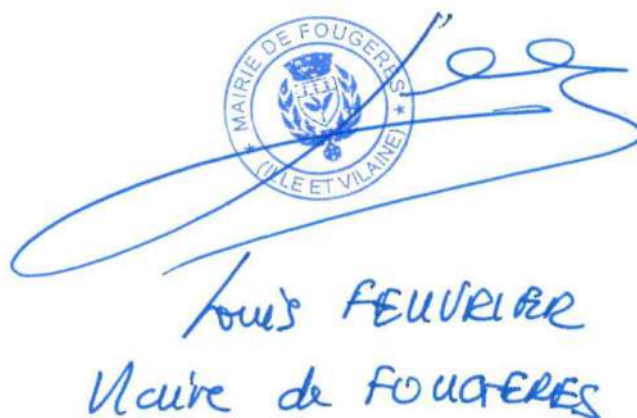 MAIRIE DE FOUGERES
(ILLE ET VILAINE)
Louis FEUVRIER
Maire de FOUGERES